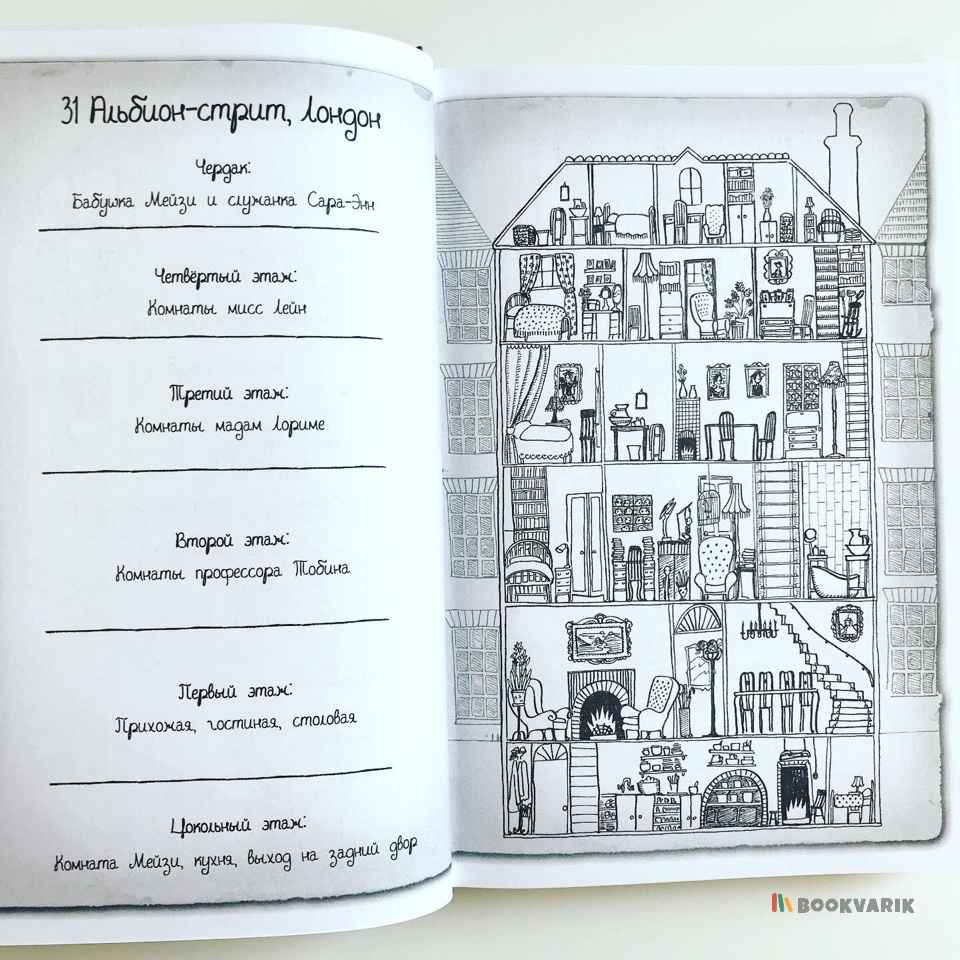 31 Альбион-стрит, Лондон
Чердак:
Бабушка Мейзи и служанка Сара-Энн
Четвёртый этаж:
Комнаты мисс Лейн
Третий этаж:
Комнаты мадам Лориме
Второй этаж:
Комнаты профессора Тобина
Первый этаж:
Прихожая, гостиная, столовая
Цокольный этаж:
Комната Мейзи, кухня, выход на задний двор
BOOKVARIK